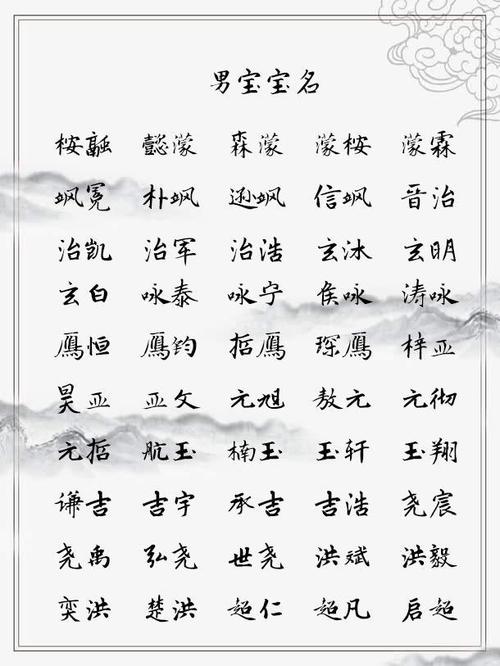 男宝宝名
桉融 懿濛 森濛 濛桉 濛霖
飒冕 朴飒 逊飒 信飒 晋治
治凯 治军 治浩 玄冰 玄明
玄白 咏泰 咏宁 侯咏 涛咏
鹰恒 鹰钧 哲鹰 琛鹰 梓亚
昊亚 亚文 元旭 敖元 元彻
元哲 航玉 楠玉 玉轩 玉翔
谦吉 吉宇 承吉 吉浩 尧宸
尧禹 弘尧 世尧 洪斌 洪毅
奕洪 楚洪 超仁 超凡 启超